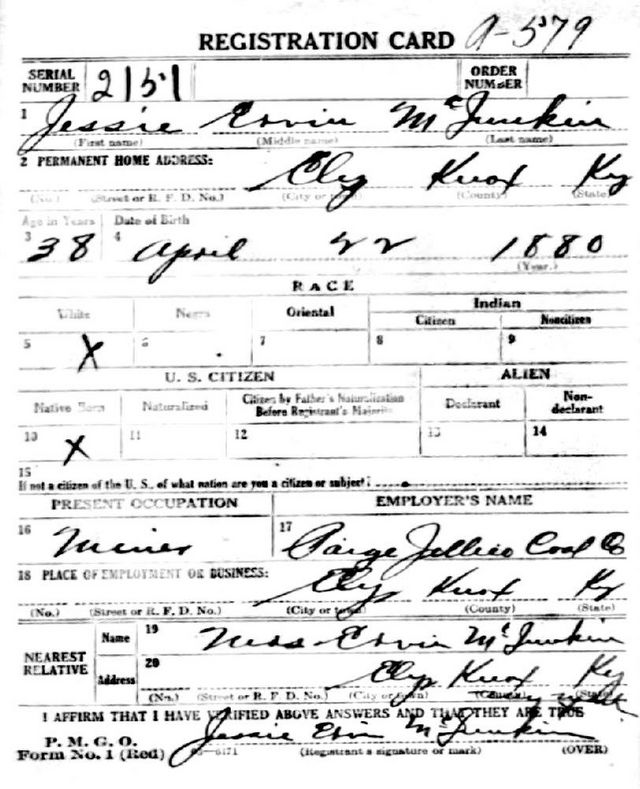 REGISTRATION CARD A-579
SERIAL NUMBER 2151 ORDER NUMBER
1 Jessie Ervin McJunkin
(First name) (Middle name) (Last name)
2 PERMANENT HOME ADDRESS:
Ely Knox Ky
(No.) (Street or R. F. D. No.) (City or town) (County) (State)
Age in Years Date of Birth
3 38 4 April 22 1880
(Year.)
RACE
White Negro Oriental Indian
Citizen Noncitizen
5 X 6 7 8 9
U. S. CITIZEN ALIEN
Native Born Naturalized Citizen by Father's Naturalization Before Registrant's Majority Declarant Non-declarant
10 X 11 12 13 14
15
If not a citizen of the U. S., of what nation are you a citizen or subject?
PRESENT OCCUPATION EMPLOYER'S NAME
16 Miner 17 Paige Jellico Coal Co
18 PLACE OF EMPLOYMENT OR BUSINESS:
Ely Knox Ky
(No.) (Street or R. F. D. No.) (City or town) (County) (State)
NEAREST RELATIVE Name 19 Ervin McJunkin
Address 20 Ely Knox Ky
(No.) (Street or R. F. D. No.) (City or town) (County) (State)
I AFFIRM THAT I HAVE VERIFIED ABOVE ANSWERS AND THAT THEY ARE TRUE
P. M. G. O.
Form No. 1 (Red) Jessie Ervin McJunkin
(Registrant's signature or mark) (OVER)